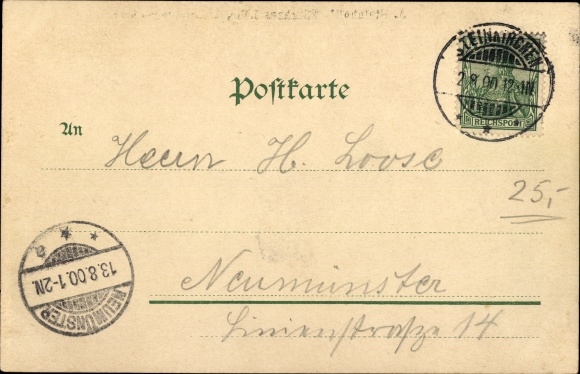 STEINKIRCHEN
2.8.00.12-1N
REICHSPOST
Postkarte
An
Herrn H. Loose
25,-
Neumünster
Linienstraße 14
13.8.00.1-2N
NEUMÜNSTER